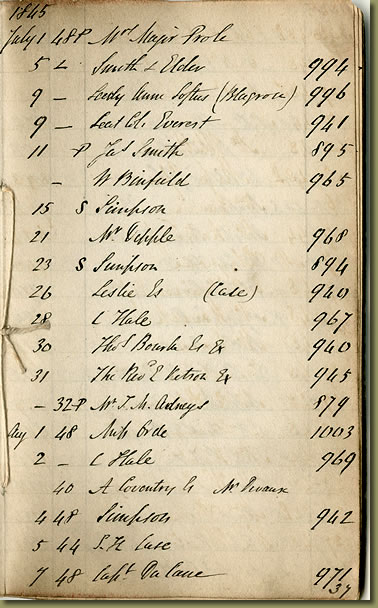 1845
July 1 48 P Mrs Major Prole
5 – Smith & Elder 994
9 – Lady Anne Loftus (Blagrove) 996
9 – Lt Cl. Everest 941
11 – P Jas Smith 895
– W Binfield 965
15 S Simpson
21 Mr 968
23 S Simpson 894
26 Leslie Es (Case) 940
28 C Hale 967
30 Thos Bourke Es Ex 940
31 The Revd E Ex 945
– 32 P Mr T. M. Adneys 879
Aug 1 48 Miss Orde 1003
2 – C Hale 969
40 A Coventry Es Mr
4 48 Simpson 942
5 44 S. H Case
7 48 Capt 971
37